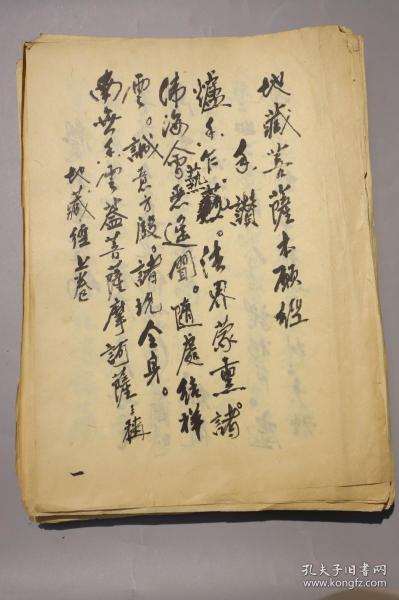 地藏菩薩本願經
香讚
爐香乍熱。法界蒙熏。諸
佛海會悉遙聞。隨處結祥
雲。誠意方殷。諸現全身。
南無香雲蓋菩薩摩訶薩三稱
地藏經上卷
一
孔夫子旧书网
www.kongfz.com